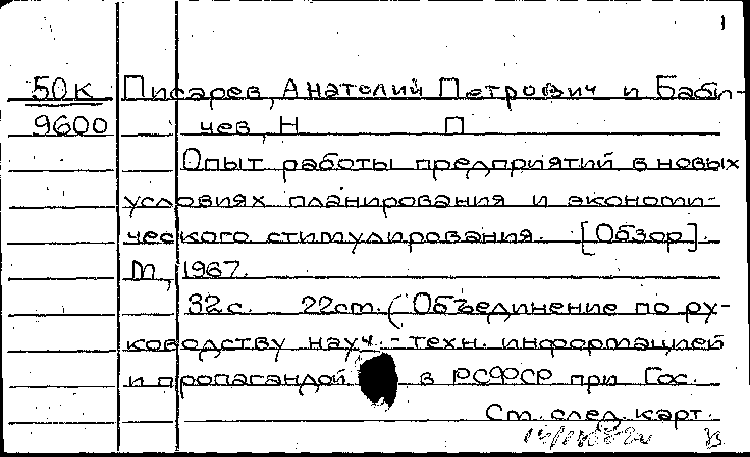 1
50к Писарев, Анатолий Петрович и Бабi-
9600 чев, Н П
Опыт работы предприятий в новых
условиях планирования и экономи-
ческого стимулирования. [Обзор].
М, 1967.
32с. 22cm. (Объединение по ру-
ководству науч.-техн. информацией
и пропагандой в РСФСР при Гос.
См. след. карт.